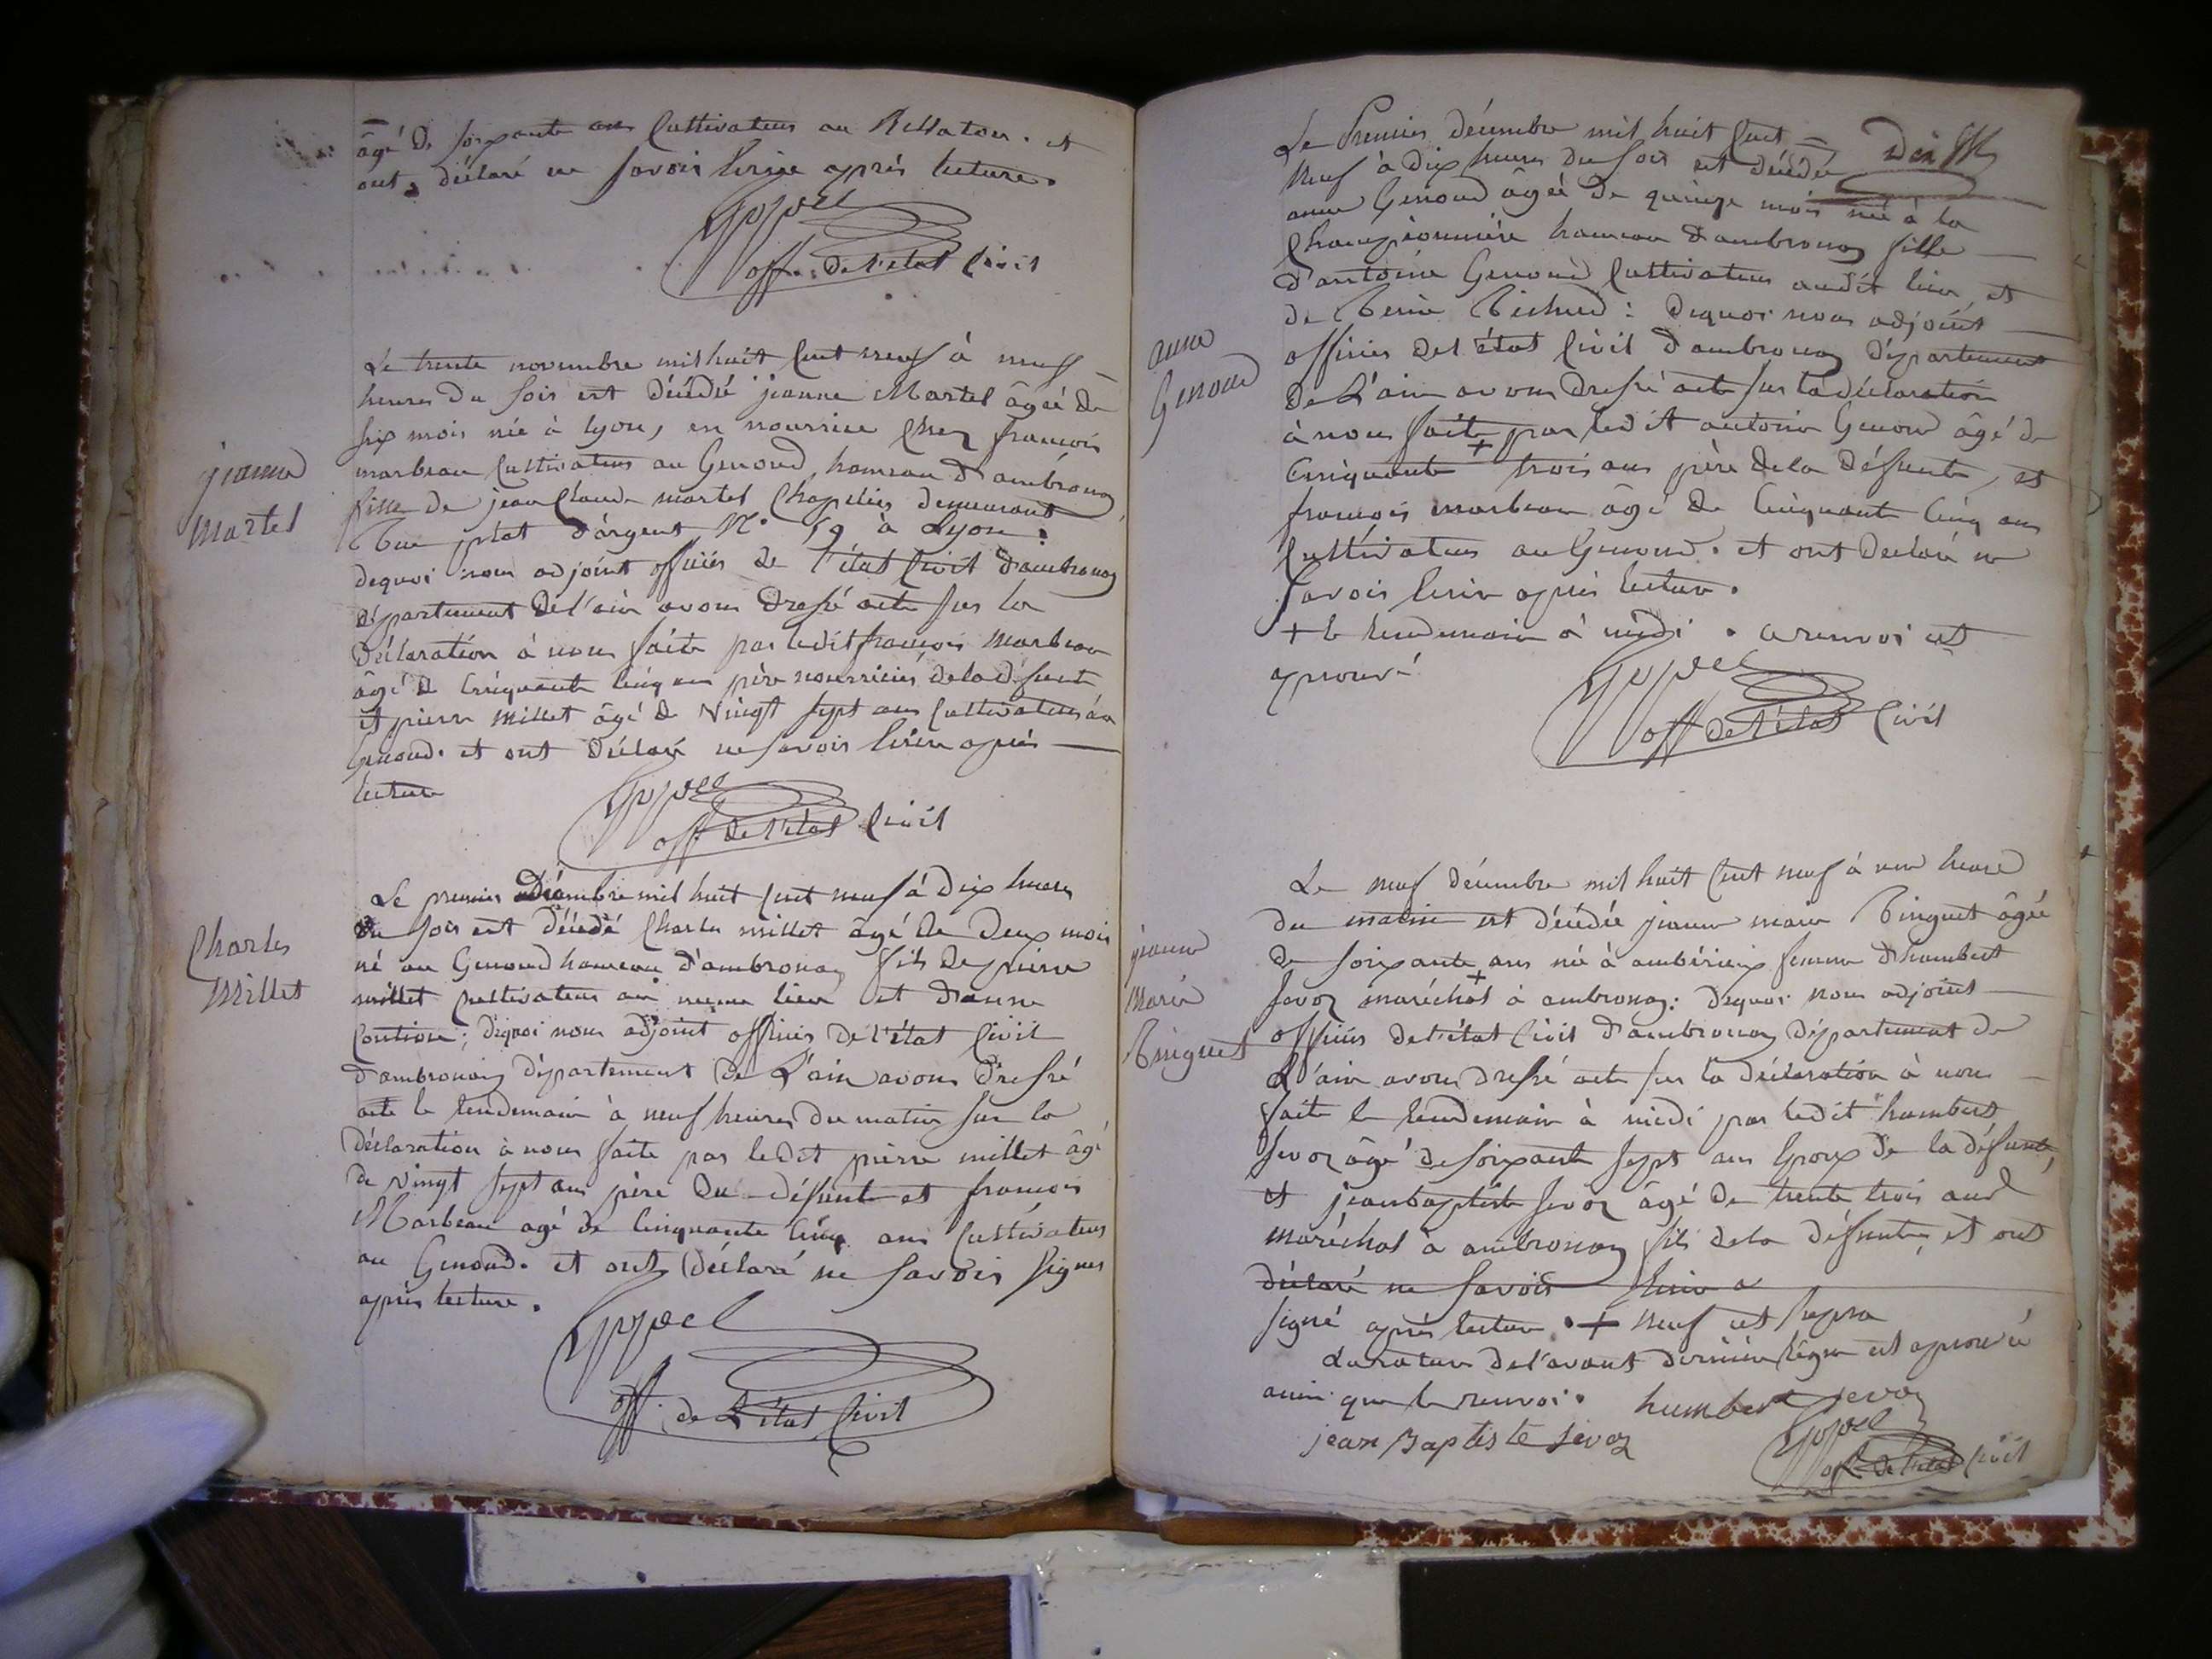 âgé de soixante ans Cultivateur au Bellaton. et
ont déclaré ne savoir Ecrire après lecture.
off. de l'état Civil
jeanne
Martel
Le trente novembre mil huit Cent neuf à neuf
heures du soir est décédé jeanne Martel âgée de
six mois née à Lyon, en nourrice Chez françois
marbeau Cultivateur au Genoud, hameau d'ambronay
fille de jean Claude martel Chapelier demeurant
Rue plat d'argent N° 19 à Lyon :
dequoi nous adjoint officier de l'état Civil d'ambronay
département de l'ain avons dressé acte sur la
déclaration à nous faite par ledit françois Marbeau
âgé de Cinquante Cinq ans père nourricier de la défunte
et pierre Millet âgé de vingt sept ans Cultivateur au
Genoud. et ont déclaré ne savoir Ecrire après
lecture
off de l'état Civil
Charles
Millet
Le premier Décembre mil huit Cent neuf à dix heures
du soir est décédé Charles millet âgé de deux mois
né au Genoud hameau d'ambronay fils de pierre
millet Cultivateur au meme lieu et d'anne
; dequoi nous adjoint officier de l'état Civil
d'ambronay département de L'ain avons dressé
acte le lendemain à neuf heures du matin sur la
déclaration à nous faite par ledit pierre millet âgé
de vingt sept ans père du défunt et françois
Marbeau agé de Cinquante Cinq ans Cultivateur
au Genoud. et ont déclaré ne savoir signer
après lecture.
off. de L'état Civil
Le Premier décembre mil huit Cent =
Neuf à dix heures du soir est décédée
anne Genoud âgée de quinze mois née à la
Championnière hameau d'ambronay fille
d'antoine Genoud Cultivateur audit lieu, et
de : dequoi nous adjoint
officier de l'état Civil d'ambronay département
de L'ain avons dressé acte sur la déclaration
à nous faite + par ledit antoine Genoud âgé de
Cinquante trois ans père de la défunte, et
françois marbeau âgé de Cinquante Cinq ans
Cultivateur au Genoud. et ont déclaré ne
savoir Ecrire après lecture.
+ le lendemain à midi . Ce renvoi est
aprouvé
off de l'état Civil
anne
Genoud
Le neuf décembre mil huit Cent neuf à une heure
du matin est décédée jeanne marie Binguet âgée
de soixante + ans née à ambérieux femme d'humbert
Jevoz maréchal à ambronay: dequoi nous adjoint
officier de l'état Civil d'ambronay département de
L'ain avons dressé acte sur la déclaration à nous
faite le lendemain à midi par ledit humbert
Jevoz âgé de soixante sept ans Epoux de la défunte,
et jean baptiste Jevoz âgé de trente trois ans
maréchal à ambronay fils de la défunte, et ont
déclaré ne savoir Ecrire a
signé après lecture . + neuf est supra
La rature de l'avant dernière ligne est aprouvée
ainsi que le renvoi.
humbert jevoz
jean Baptiste Jevoz
off. de l'état Civil
jeanne
Marie
Binguet